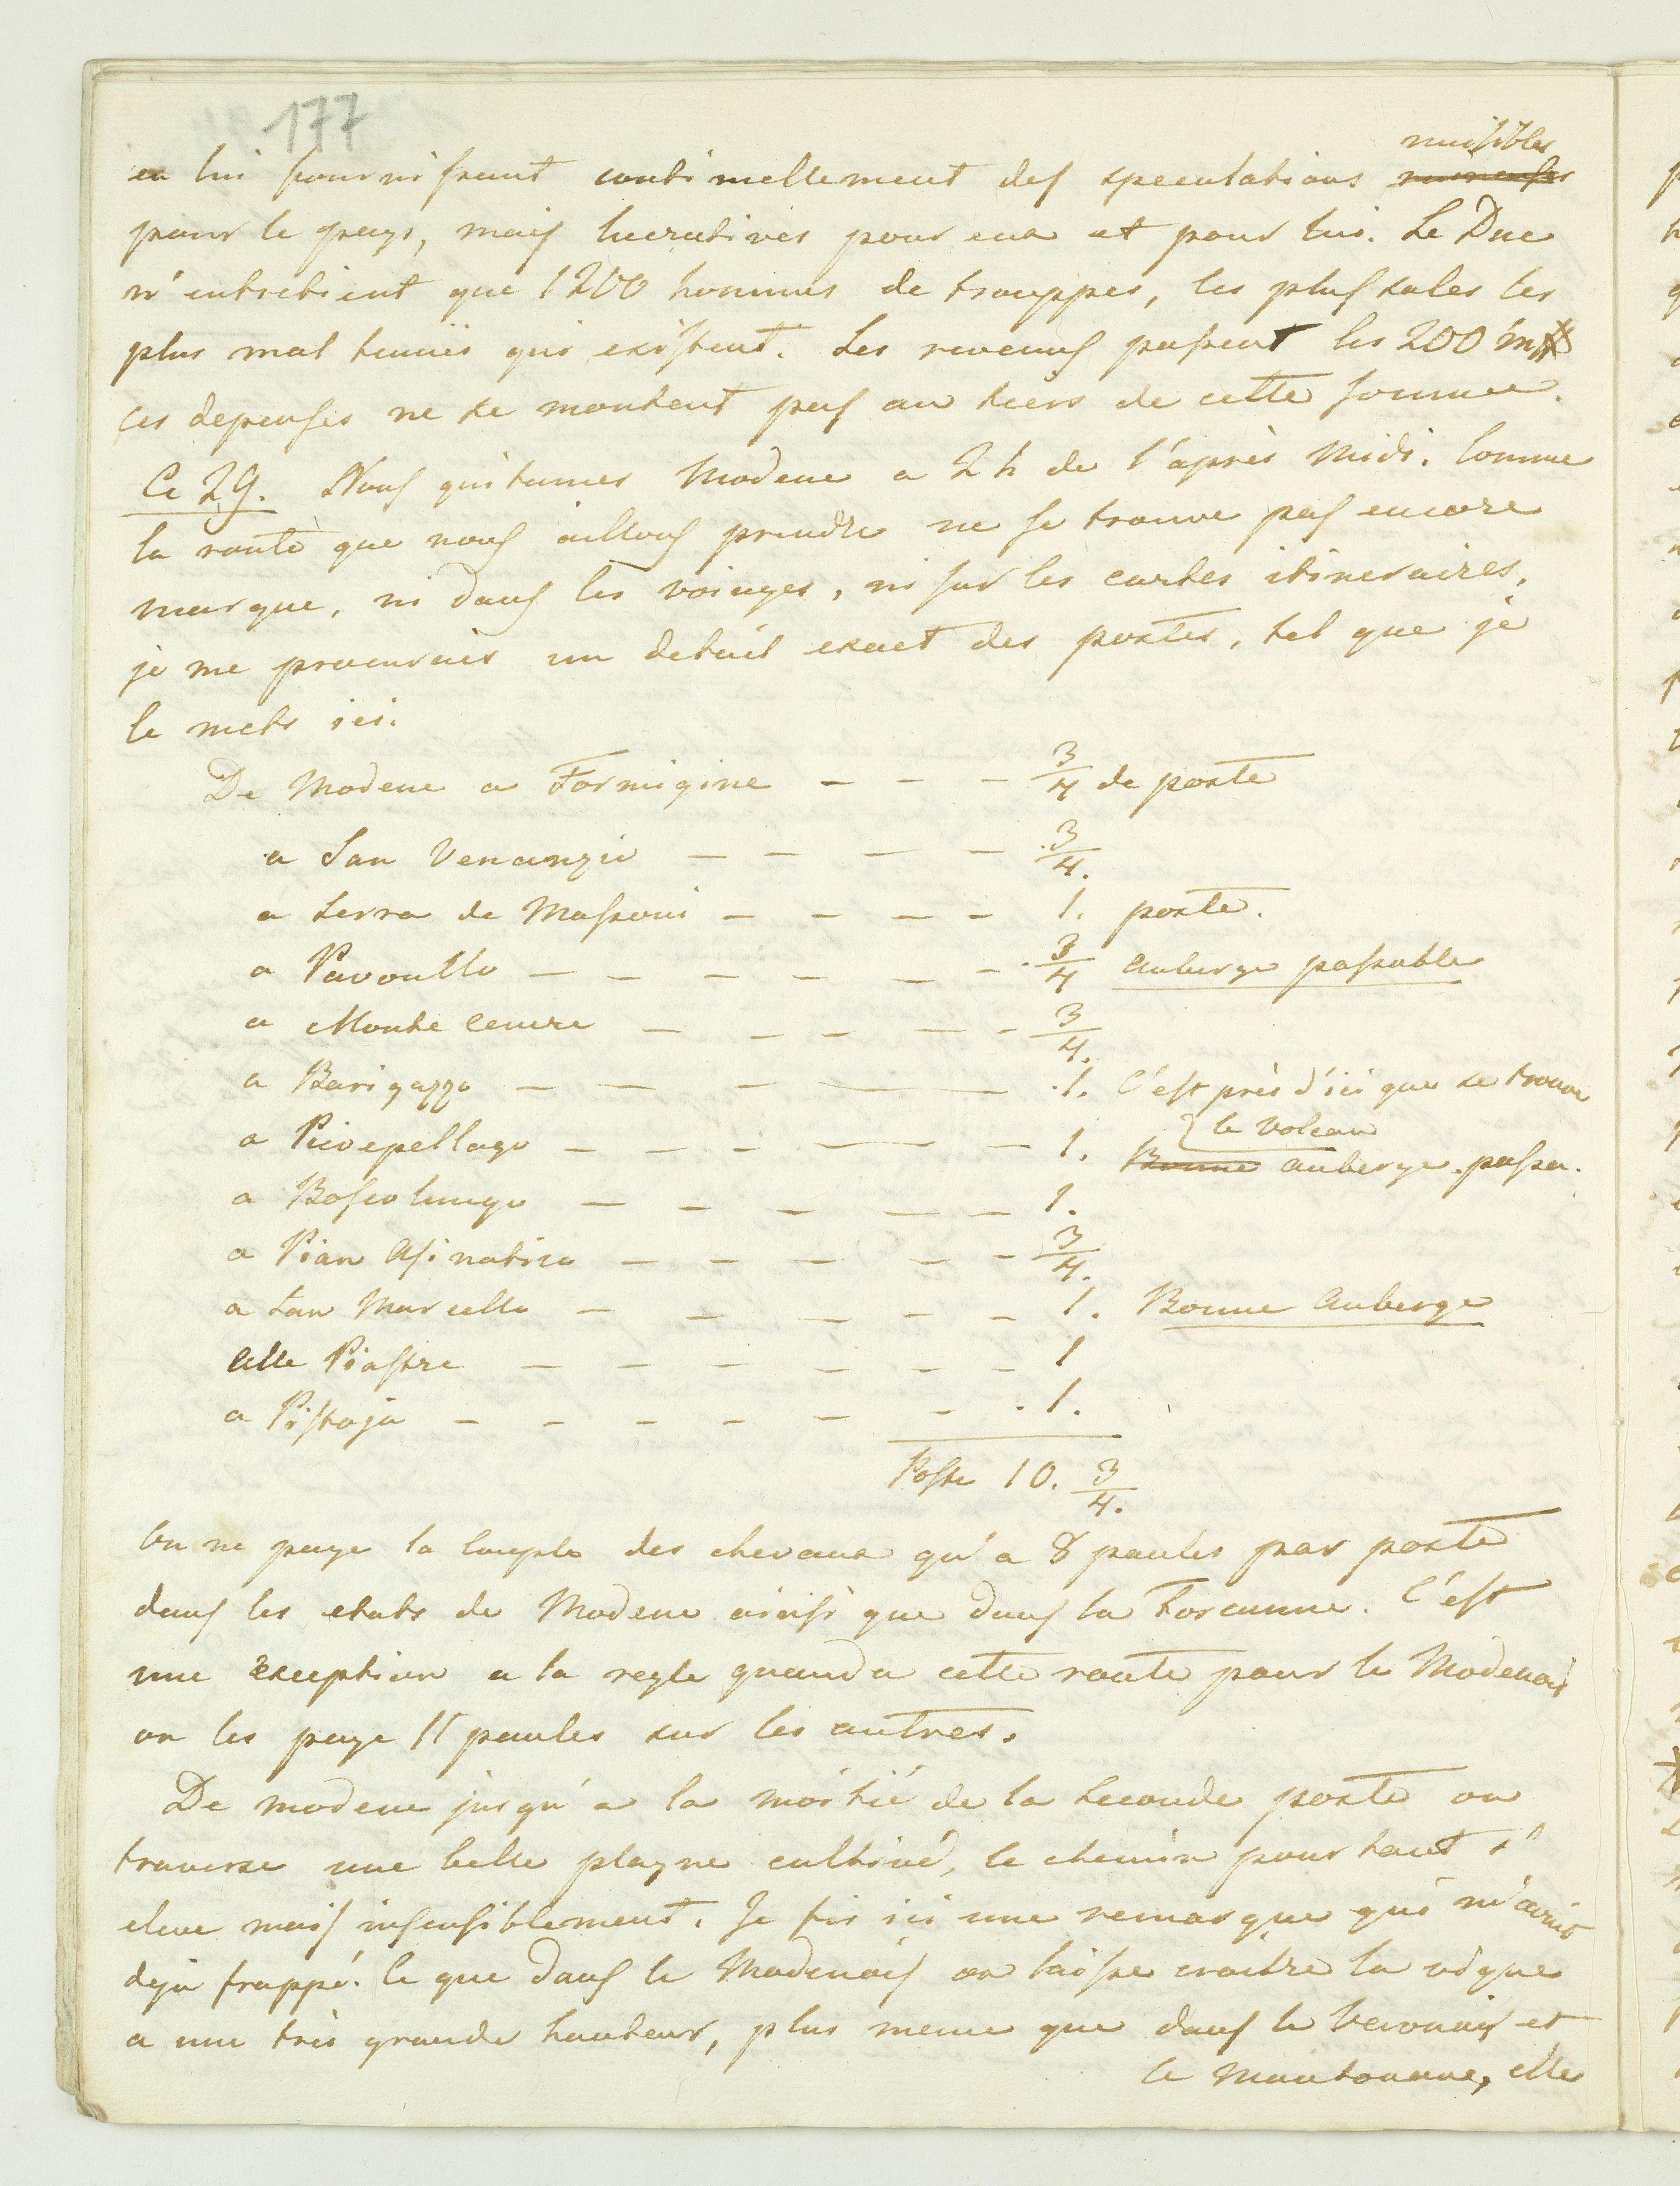 177
en lui fournissant continuellement des speculations nuisibles
pour le pays, mais lucratives pour eux et pour lui. Le Duc
n'entretient que 1200 hommes de trouppes, les plus sales les
plus mal tenües qui existent. Ses revenus passent les 200 m
ses depenses ne se montent pas au tiers de cette somme.
Ce 29. Nous quitames Modene a 2 h de l'après midi. Comme
la route que nous allons prendre ne se trouve pas encore
marque, ni dans les voiages, ni sur les cartes itineraires,
je me procurais un detail exact des postes, tel que je
le mets ici.
De Modene a Formigine — — — 3/4 de poste
a San Venanzio — — — — 3/4.
a Serra de Massoni — — — — 1. poste.
a Pavoullo — — — — — — 3/4 Auberge passable
a Monte Cenere — — — — — 3/4.
a Barigazzo — — — — — 1. C'est près d'ici que se trouve
le Volcan
a Pievepellago — — — — — — 1. Bonne auberge. passa.
a Boscolungo — — — — — 1.
a Pian Asinatico — — — — — 3/4.
a San Marcello — — — — — 1. Bonne Auberge
Alle Piastre — — — — — — 1
a Pistoja — — — — — — 1.
Poste 10. 3/4.
On ne paye la couple des chevaux qu'a 8 paules par poste
dans les etats de Modene ainsi que dans la Toscanne. C'est
une exception a la regle quand a cette route pour le Modenois
on les paye 11 paules sur les autres.
De modene jusqu'a la moitié de la seconde poste on
traverse une belle plagne cultivé, le chemin pourtant s'
eleve mais insensiblement. Je fis ici une remarque qui m'avait
deja frappé. C que dans le Modenois on laisse croitre la vigne
a une très grande hauteur, plus meme que dans le Veronois et
le Mantouane, elle